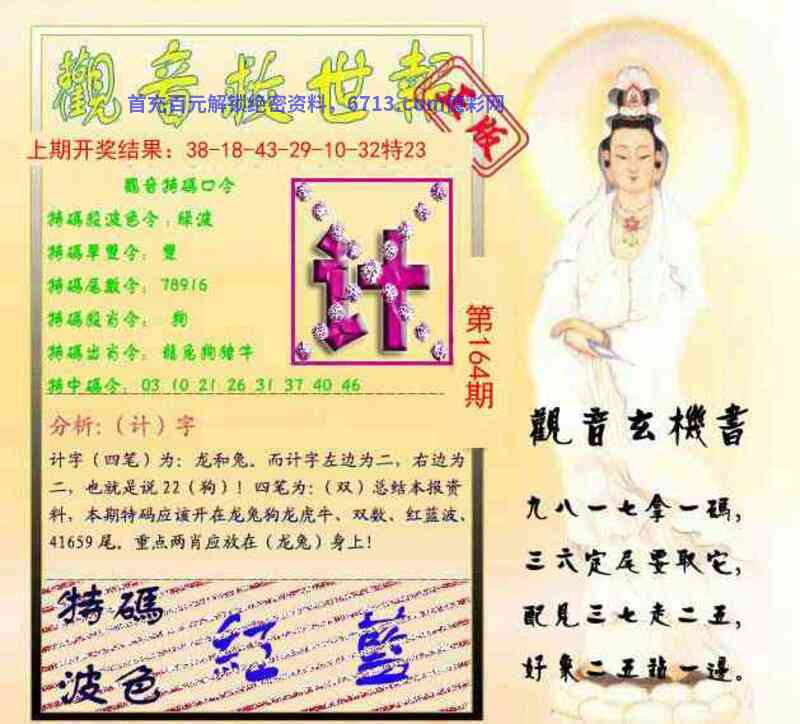 觀音救世報
首充百元解锁绝密资料，6713.com
彩网
上期开奖结果：38-18-43-29-10-32特23
觀音特碼口令
特碼殺波色令：綠波
特碼單雙令：雙
特碼尾數令：78916
特碼殺肖令：狗
特碼出肖令：龍兔狗猪牛
特中碼令：03 10 21 26 31 37 40 46
计
第164期
分析:（计）字
计字（四笔）为：龙和兔。而计字左边为二，右边为
二，也就是说22（狗）！四笔为：（双）总结本报资
料，本期特码应该开在龙兔狗龙虎牛、双数、红蓝波、
41659尾。重点两肖应放在（龙兔）身上！
特碼
波色
紅 藍
觀音玄機書
九八一七拿一碼，
三六定尾要取它，
配見三七走二五，
好象二五站一邊。